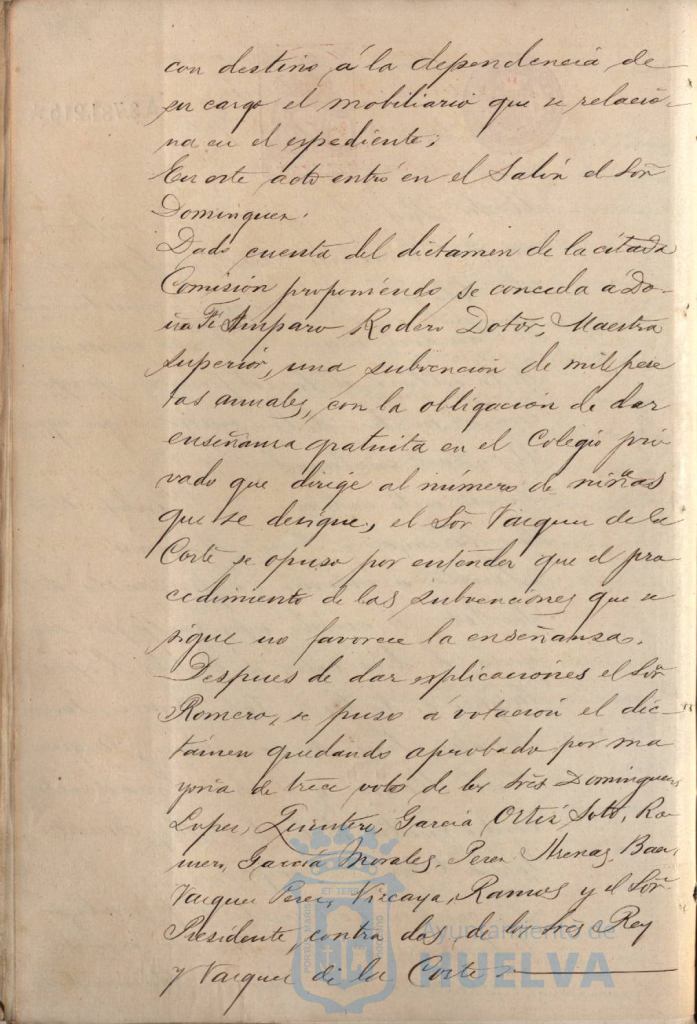 con destino á la dependencia de
su cargo el mobiliario que se relacio-
na en el espediente.
En este acto entró en el Salón el Sor
Dominguez.
Dado cuenta del dictámen de la citada
Comisión proponiendo se conceda á Do-
ña Amparo Rodero Dotor, Maestra
superior, una subvención de mil pese
tas anuales, con la obligación de dar
enseñanza gratuita en el Colegio pri-
vado que dirige al número de niñas
que se designe, el Sor Vazquez de la
Corte se opuso por entender que el pro
cedimiento de las subvenciones que se
sigue no favorece la enseñanza.
Despues de dar esplicaciones el Sor
Romero, se puso á votación el dic-
támen quedando aprobado por ma
yoria de trece votos de los Sres Dominguez
Lopez, Quintero, Garcia Ortiz, Soto, Ro-
mero, Garcia Morales, Perez Arenas,
Vazquez Perez, Vizcaya, Ramos y el Sor
Presidente contra dos de los Sres Rey
y Vazquez de la Corte
PORTUS MARIS
ET TERRÆ
CUSTODIA
Ayuntamiento de
HUELVA